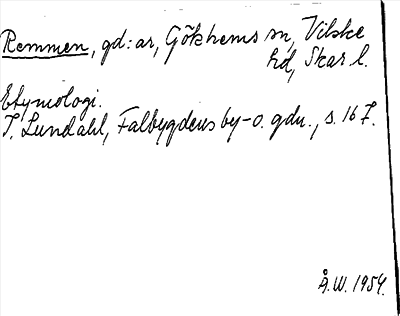 Remmen, gd:ar, Gökhems sn, Vilske
hd, Skar l.
Etymologi.
I. Lundahl, Falbygdens by-o. gdn., s. 167.
Å.W. 1954.